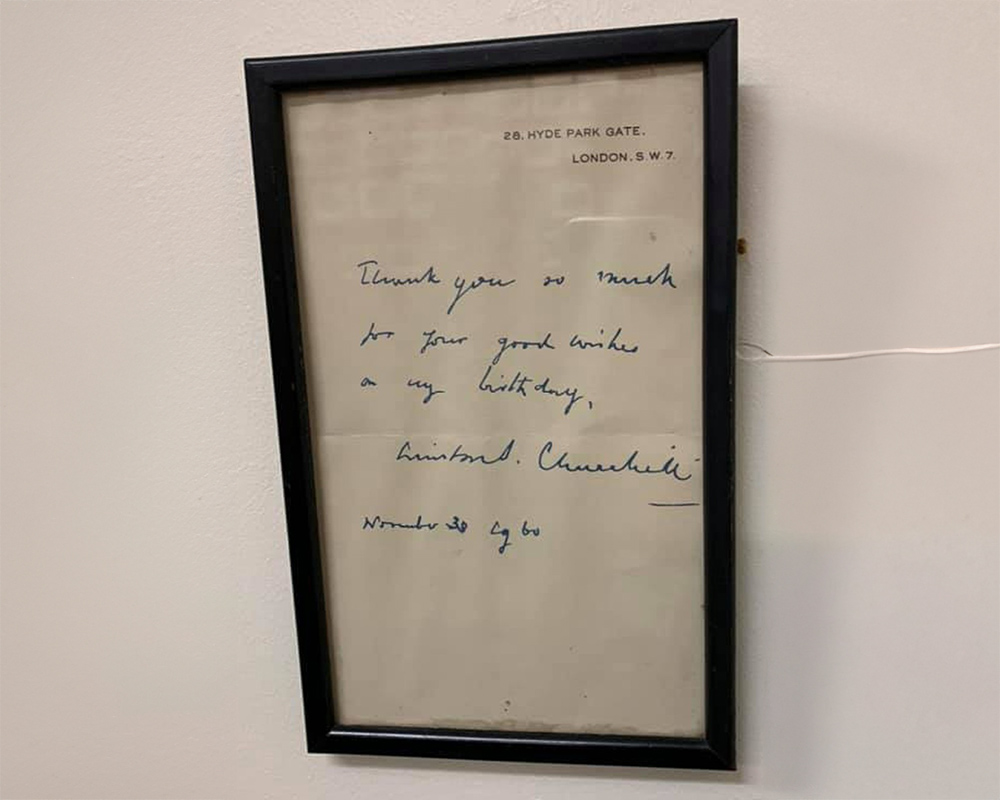 28, HYDE PARK GATE,
LONDON, S.W.7.
Thank you so much
for your good wishes
on my birthday,
Winston S. Churchill
November 30 1960